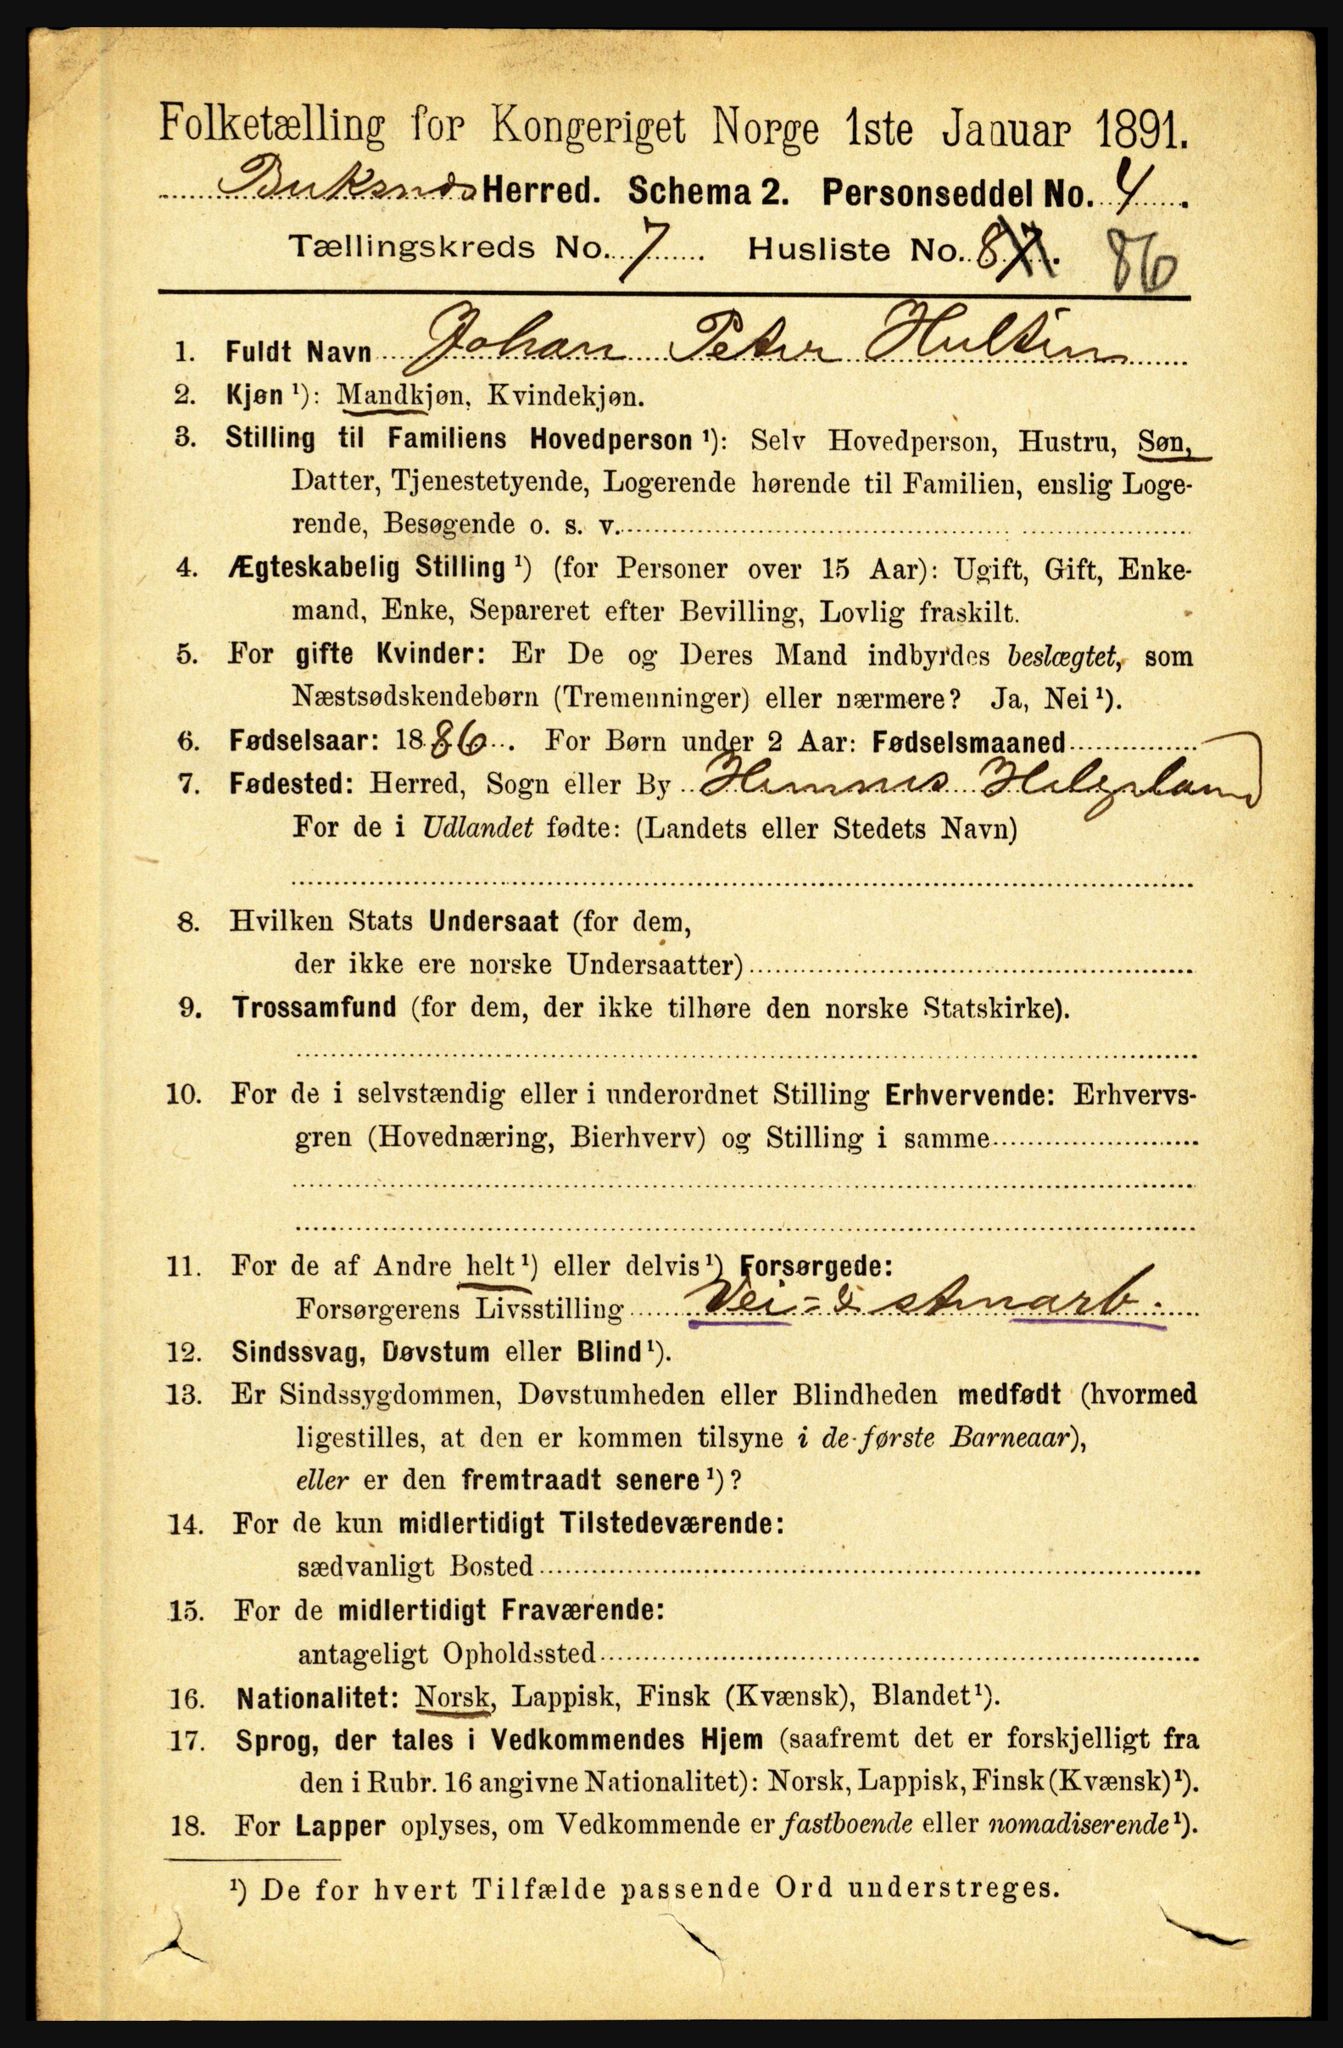 Folketælling for Kongeriget Norge 1ste Januar 1891.
Buksnæs Herred. Schema 2. Personseddel No. 4.
Tællingskreds No. 7 Husliste No. 87. 86
1. Fuldt Navn Johan Peter Hultin
2. Kjøn ¹): Mandkjøn, Kvindekjøn.
3. Stilling til Familiens Hovedperson ¹): Selv Hovedperson, Hustru, Søn,
Datter, Tjenestetyende, Logerende hørende til Familien, enslig Loge-
rende, Besøgende o. s. v.
4. Ægteskabelig Stilling ¹) (for Personer over 15 Aar): Ugift, Gift, Enke-
mand, Enke, Separeret efter Bevilling, Lovlig fraskilt.
5. For gifte Kvinder: Er De og Deres Mand indbyrdes beslægtet, som
Næstsødskendebørn (Tremenninger) eller nærmere? Ja, Nei ¹).
6. Fødselsaar: 1886. For Børn under 2 Aar: Fødselsmaaned
7. Fødested: Herred, Sogn eller By Hemnes Helgeland
For de i Udlandet fødte: (Landets eller Stedets Navn)
8. Hvilken Stats Undersaat (for dem,
der ikke ere norske Undersaatter)
9. Trossamfund (for dem, der ikke tilhøre den norske Statskirke).
10. For de i selvstændig eller i underordnet Stilling Erhvervende: Erhvervs-
gren (Hovednæring, Bierhverv) og Stilling i samme
11. For de af Andre helt ¹) eller delvis ¹) Forsørgede:
Forsørgerens Livsstilling Vei= & stenarb.
12. Sindssvag, Døvstum eller Blind ¹).
13. Er Sindssygdommen, Døvstumheden eller Blindheden medfødt (hvormed
ligestilles, at den er kommen tilsyne i de første Barneaar),
eller er den fremtraadt senere ¹)?
14. For de kun midlertidigt Tilstedeværende:
sædvanligt Bosted
15. For de midlertidigt Fraværende:
antageligt Opholdssted
16. Nationalitet: Norsk, Lappisk, Finsk (Kvænsk), Blandet ¹).
17. Sprog, der tales i Vedkommendes Hjem (saafremt det er forskjelligt fra
den i Rubr. 16 angivne Nationalitet): Norsk, Lappisk, Finsk (Kvænsk) ¹).
18. For Lapper oplyses, om Vedkommende er fastboende eller nomadiserende ¹).
¹) De for hvert Tilfælde passende Ord understreges.